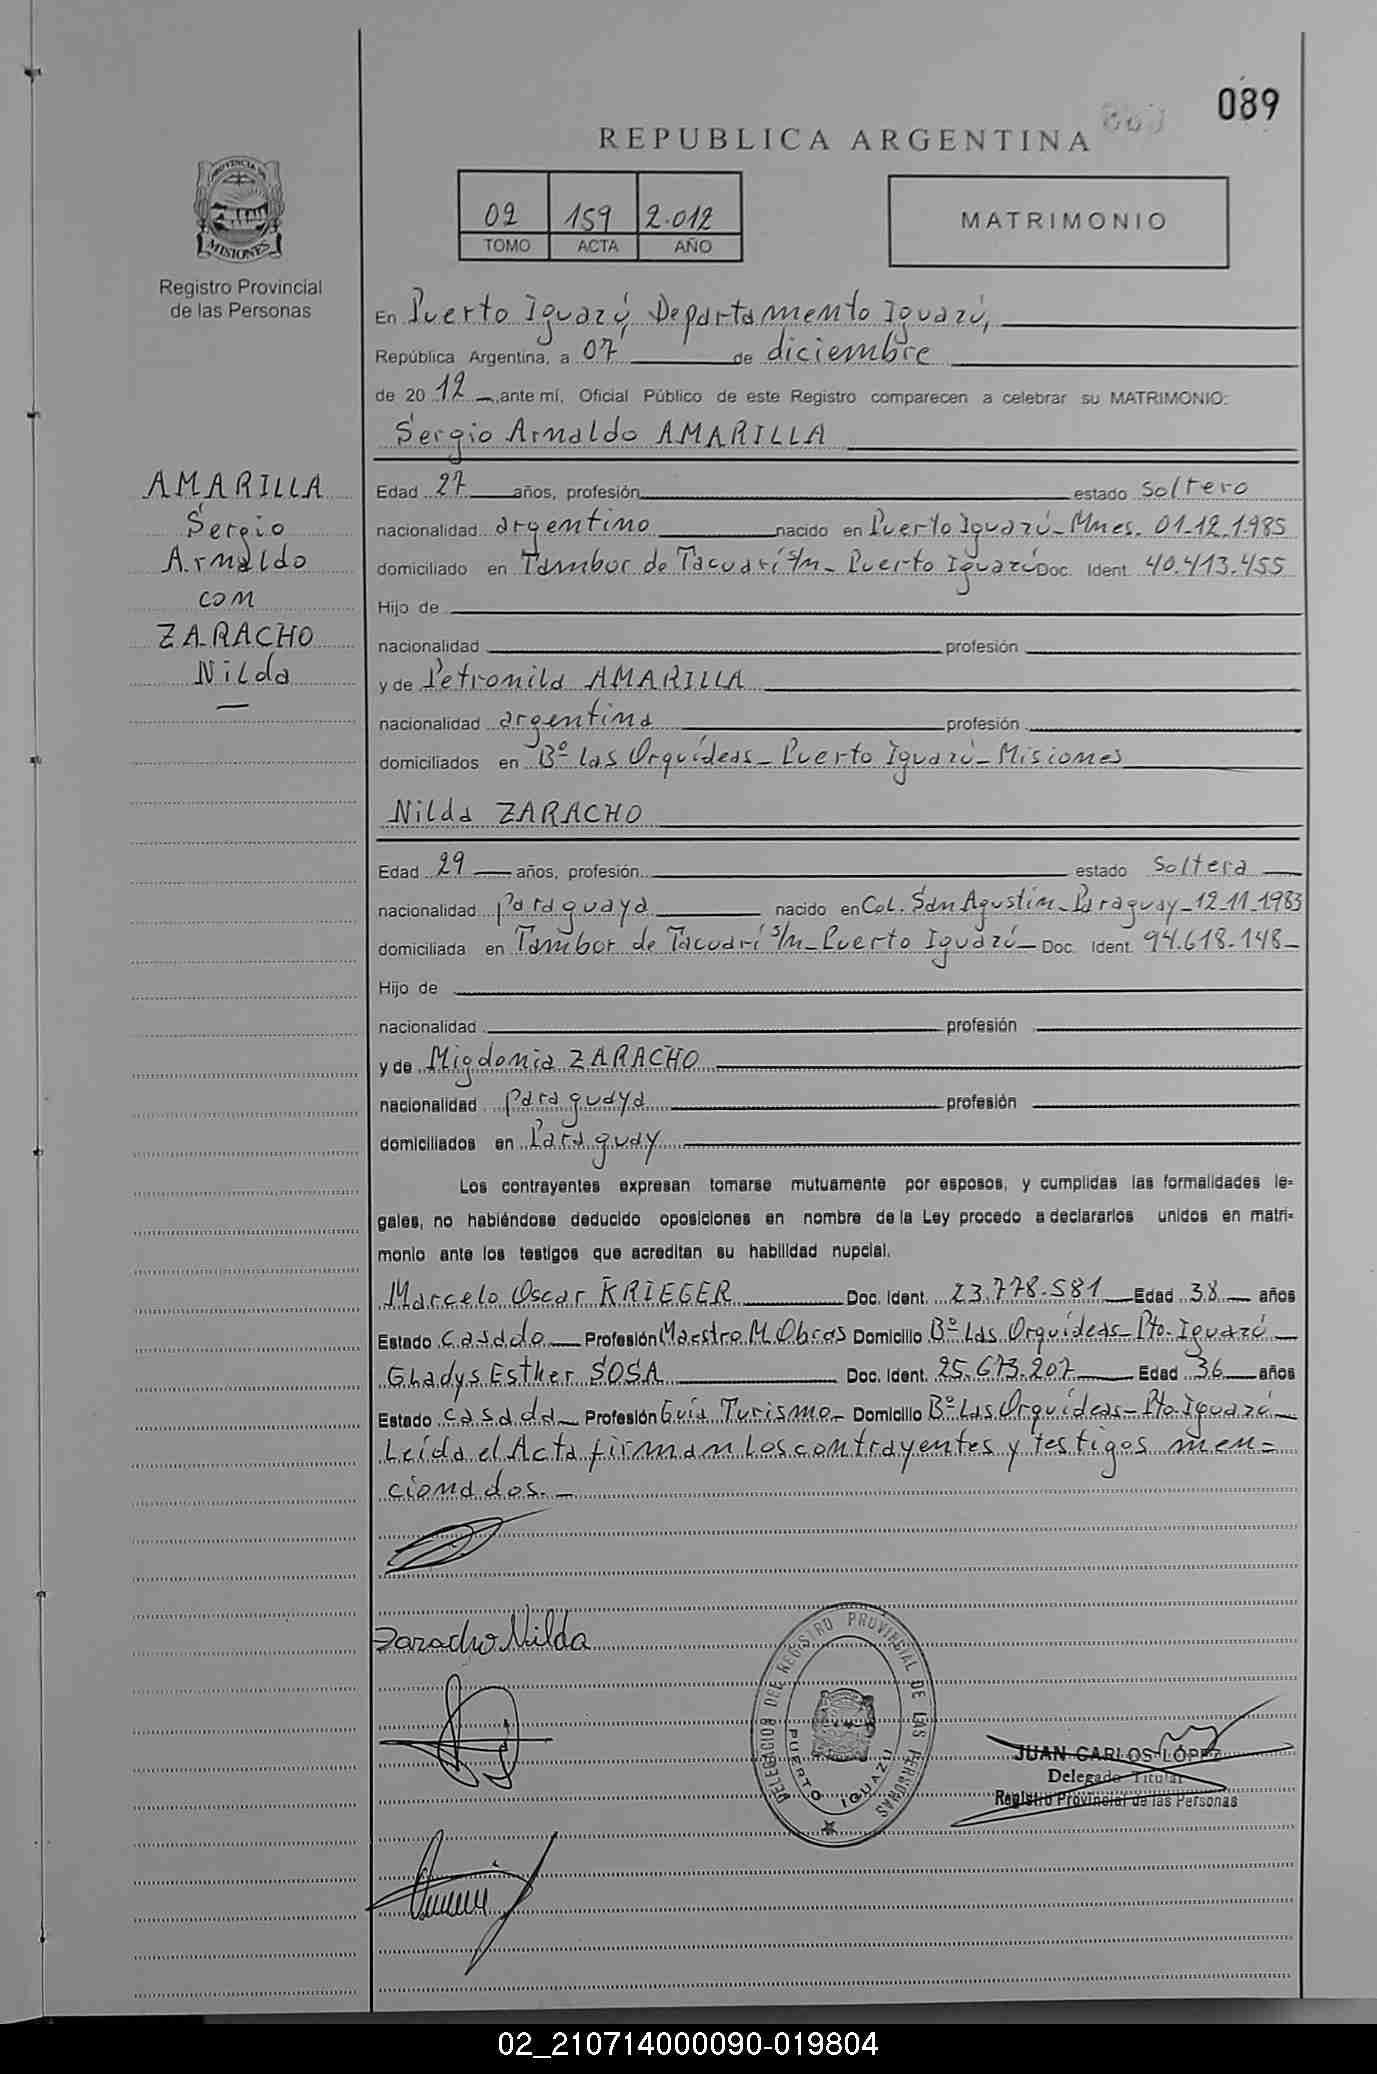 089
REPUBLICA ARGENTINA
02 159 2.012
TOMO ACTA AÑO
MATRIMONIO
PROVINCIA DE
MISIONES
Registro Provincial
de las Personas
En Puerto Iguazú, Departamento Iguazú,
República Argentina, a 07 de diciembre
de 20 12 ,ante mí, Oficial Público de este Registro comparecen a celebrar su MATRIMONIO:
Sergio Arnaldo AMARILLA
AMARILLA
Sergio
Arnaldo
con
ZARACHO
Nilda
Edad 27 años, profesión estado soltero
nacionalidad argentino nacido en Puerto Iguazú_Mnes. 01.12.1.985
domiciliado en Tambor de Tacuarí s/n_Puerto Iguazú Doc. Ident. 40.413.455
Hijo de
nacionalidad profesión
y de Petronila AMARILLA
nacionalidad argentina profesión
domiciliados en Bº Las Orquídeas_Puerto Iguazú_Misiones
Nilda ZARACHO
Edad 29 años, profesión estado soltera
nacionalidad paraguaya nacido en Col. San Agustín_Paraguay_12.11.1983
domiciliada en Tambor de Tacuarí s/n_Puerto Iguazú_ Doc. Ident. 94.618.148_
Hijo de
nacionalidad profesión
y de Migdonia ZARACHO
nacionalidad paraguaya profesión
domiciliados en Paraguay
Los contrayentes expresan tomarse mutuamente por esposos, y cumplidas las formalidades le=
gales, no habiéndose deducido oposiciones en nombre de la Ley procedo a declararlos unidos en matri=
monio ante los testigos que acreditan su habilidad nupcial.
Marcelo Oscar KRIEGER Doc. Ident. 23.778.581 Edad 38 años
Estado casado Profesión Maestro M. Obras Domicilio Bº Las Orquídeas_Pto. Iguazú
Gladys Esther SOSA Doc. Ident. 25.673.207 Edad 36 años
Estado casada Profesión Guía Turismo_ Domicilio Bº Las Orquídeas_Pto. Iguazú
Leída el Acta firman los contrayentes y testigos men=
cionados._
Zaracho Nilda
DELEGACION DEL REGISTRO PROVINCIAL DE LAS PERSONAS
PUERTO IGUAZU
JUAN CARLOS LÓPEZ
Delegado Titular
Registro Provincial de las Personas
02_210714000090-019804